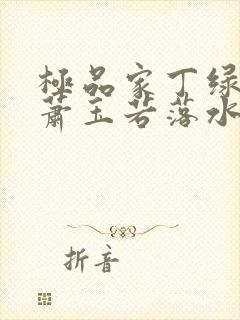 極品家丁绿
萧玉若落水
折音